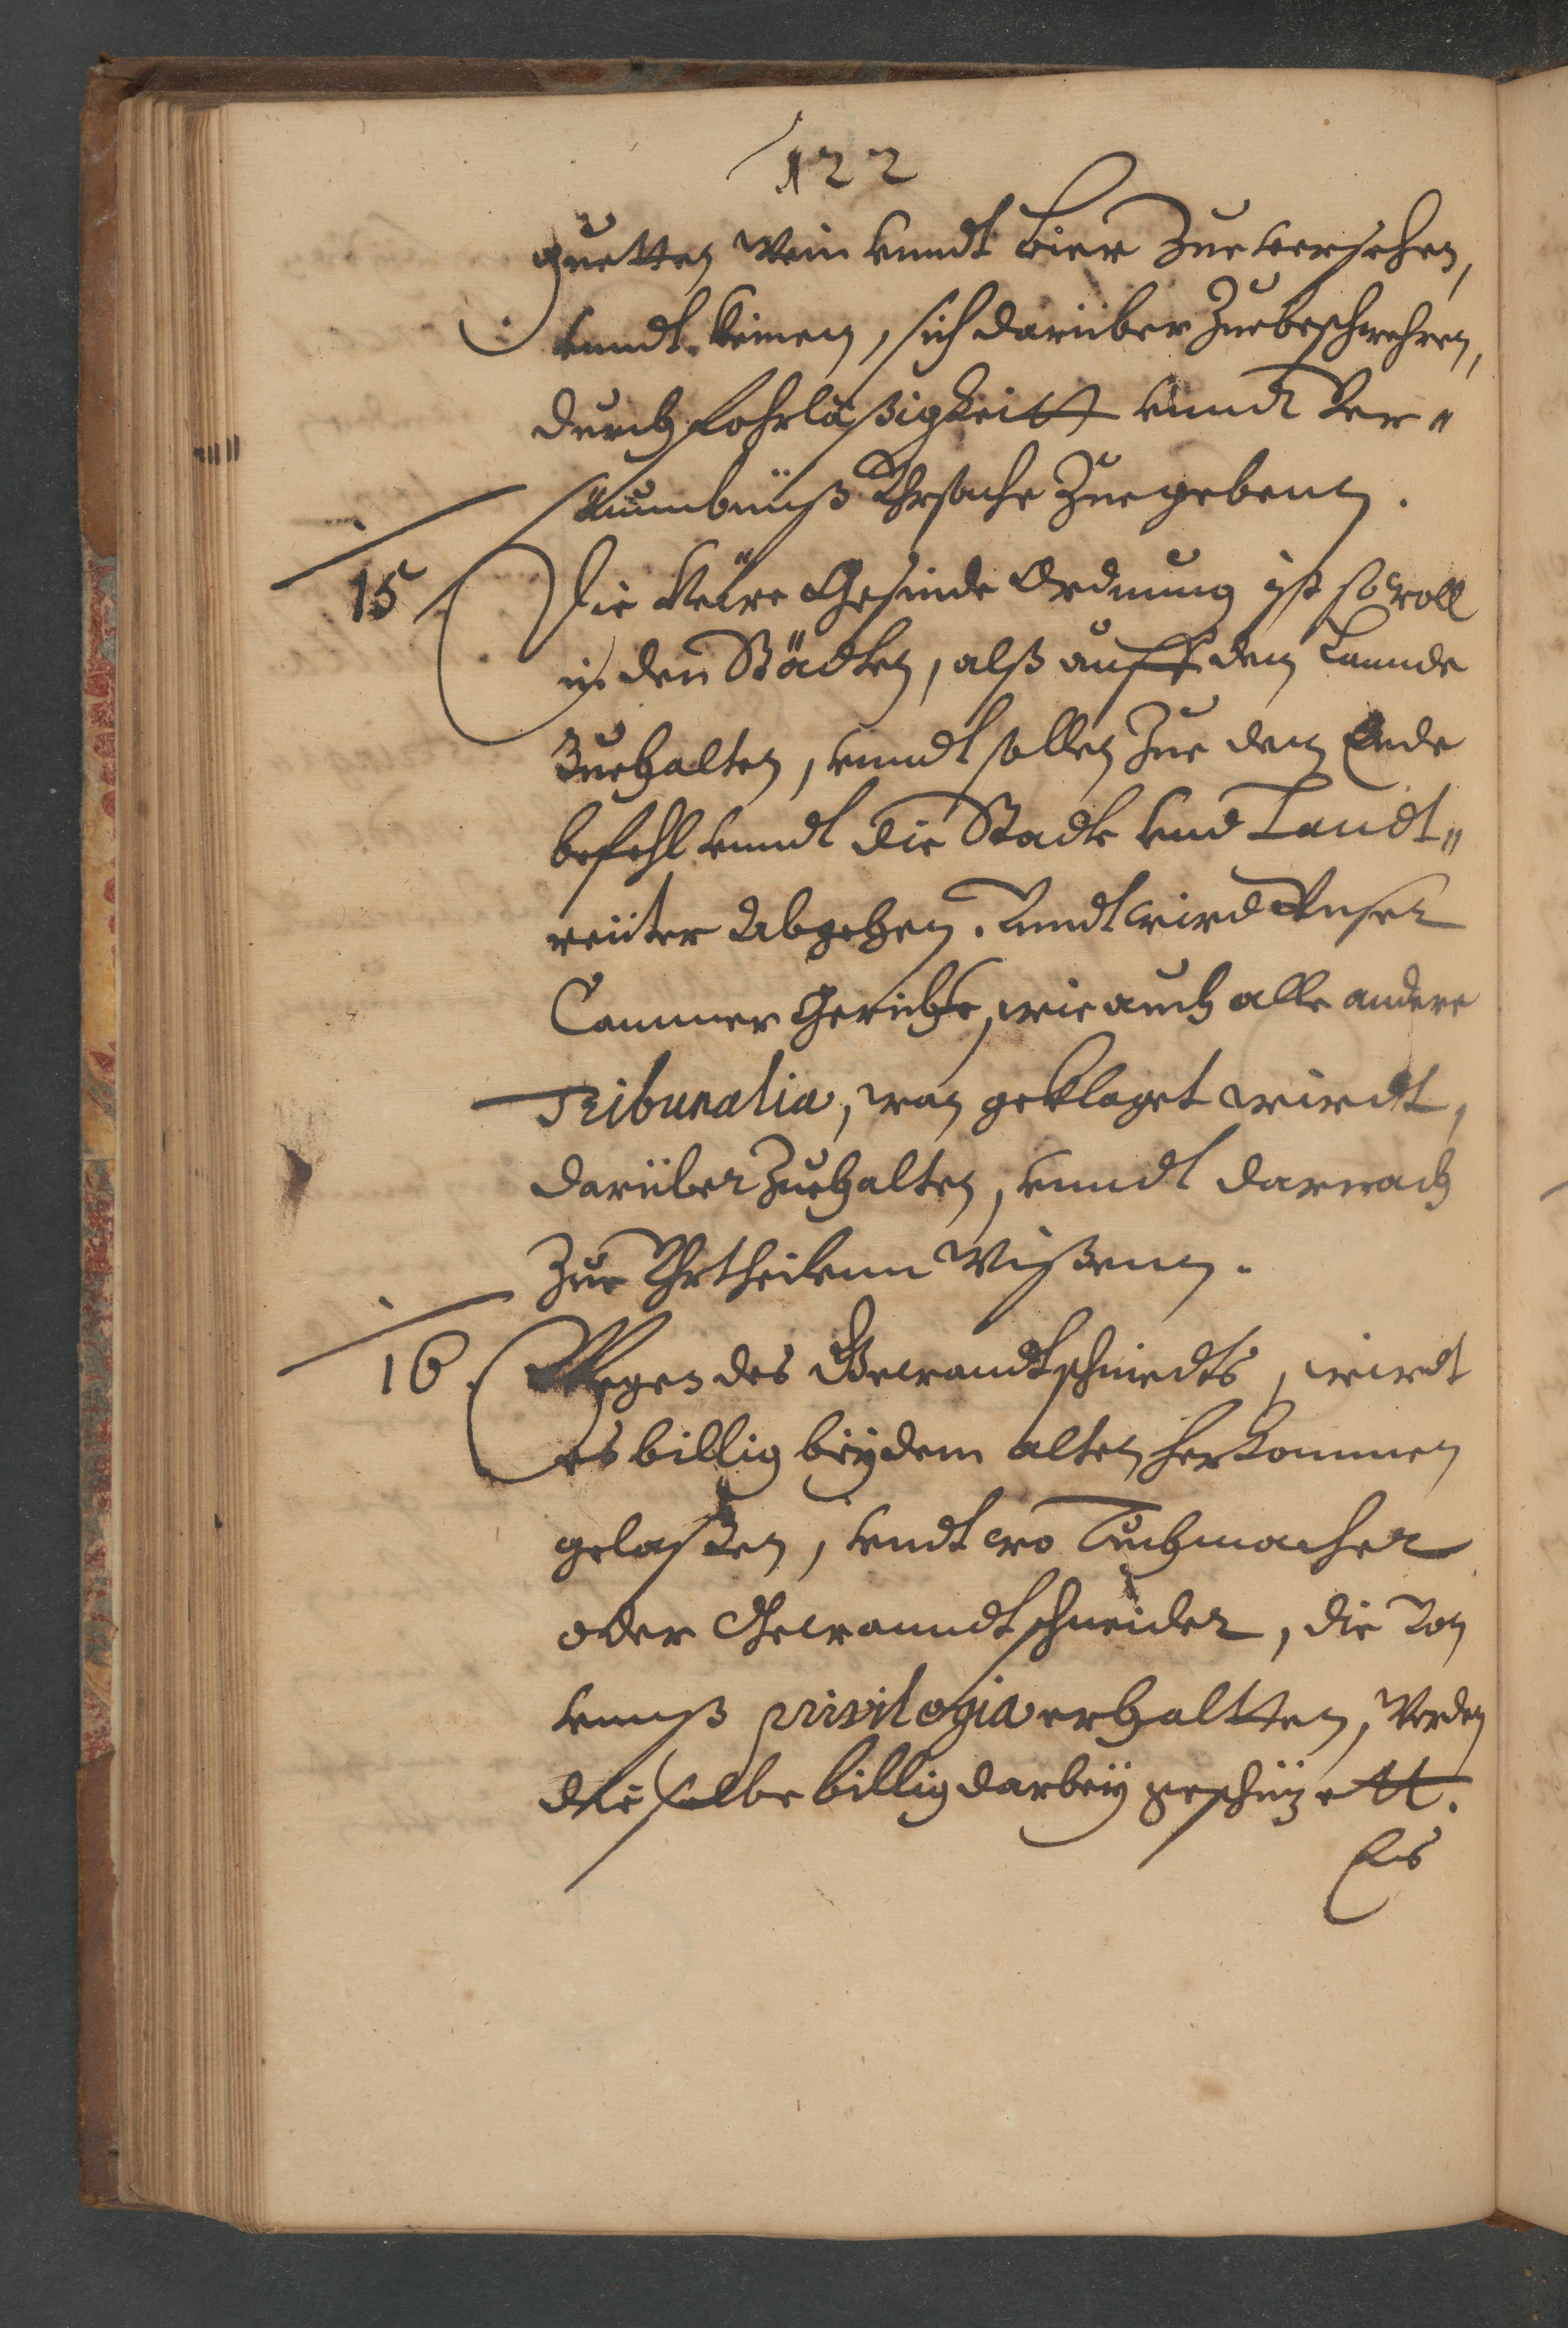 122
guetten Wein vnndt bier Zue versehen,
vnndt keinen, sich darüber Zuebeschwehren,
durch Fohrläßigkeitt vnndt Ver„
säumbnüß Vhrsache Zuegebenn.
15. Die Newe Gesinde Ordnung ist sowoll
in den Städten, alß auff den Lannde
Zuehalten, vnndt sollen Zue dem Ende
befehl vnndt die Stadt vnd Landt„
reüter Abgehen. Vnndt wird Vnser
Cammer Gericht, wie auch alle andere
Tribunalia, wan geklaget wirdt,
darüber Zuehalten, vnndt darnach
Zue Vhrtheilenn Wißenn.
16. Wegen des Gewandtschniedts, wirdt
es billig bey dem alten herkommen
gelaßen, vndt wo Tuchmacher
oder Gewanndtschneider, die Von
vnnß privilegia erhaltten, Werden
dieselbe billig darbey geschützett.
Es